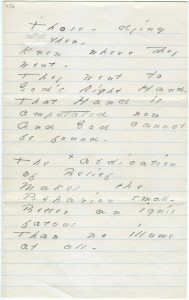 Those - dying
then,
Knew where they
went -
They went to
God's Right Hand -
That Hand is
amputated now
And God cannot
be found -
The Abdication
of Belief
Makes the
Behavior small -
Better an ignis
fatuus
Than no illume
at all -